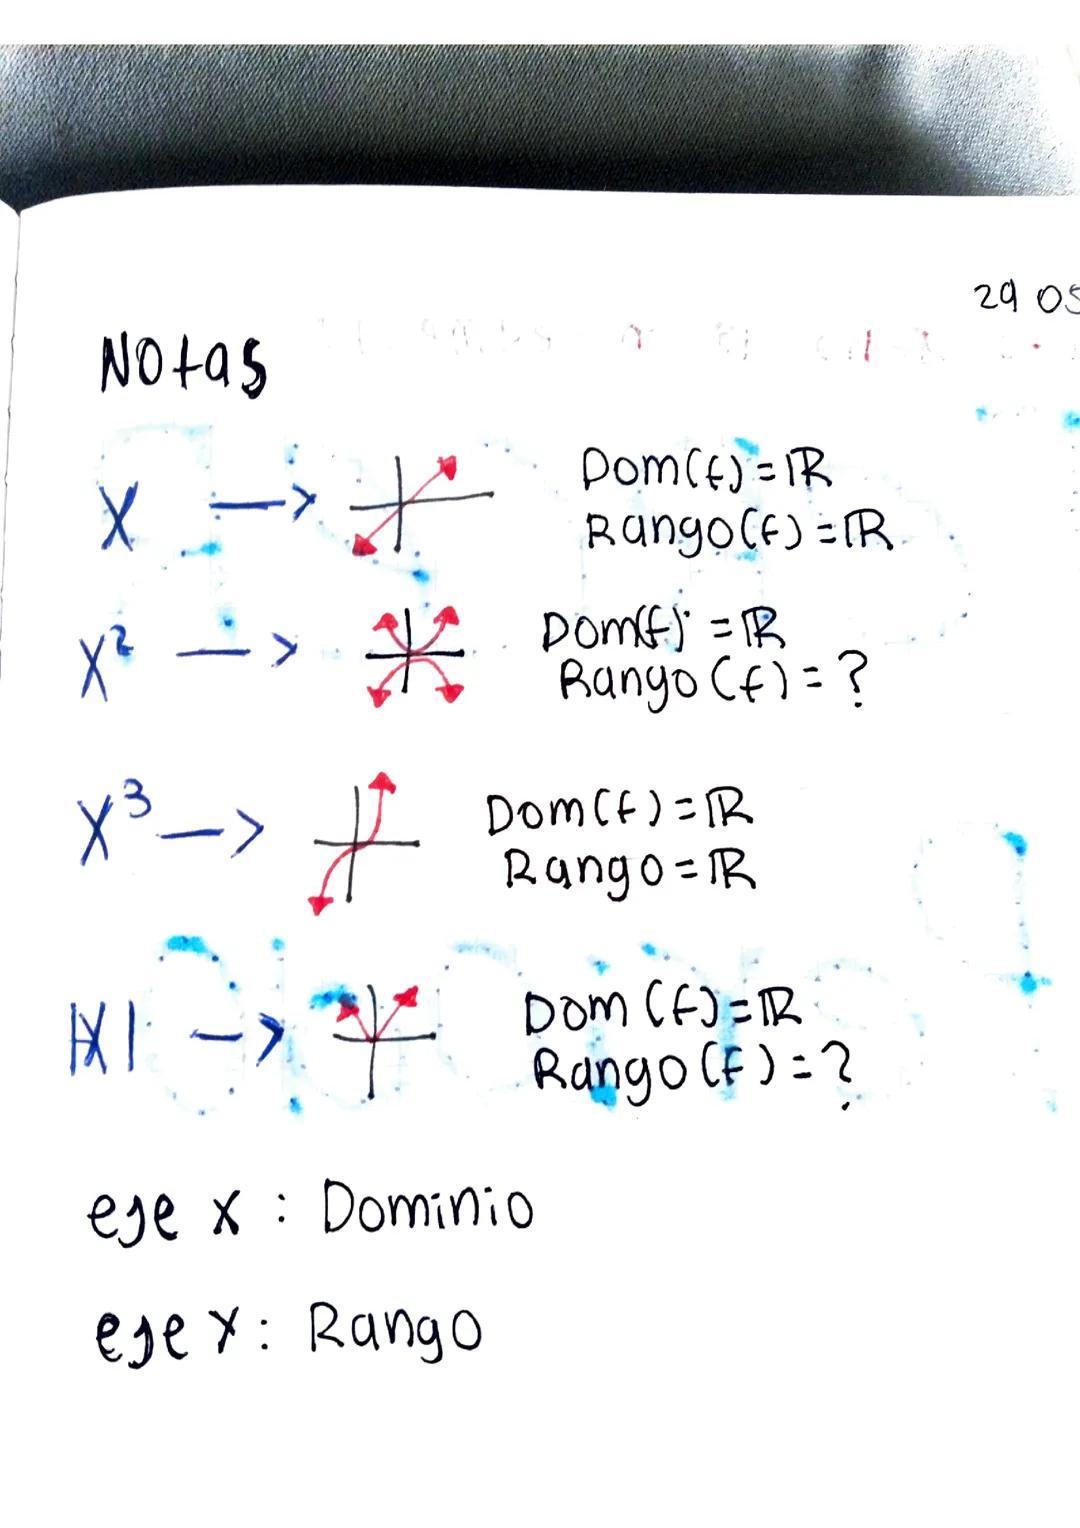 29 05
Notas
X → Dom(f) = ℝ
Rango(f) = ℝ
X² → Dom(f) = ℝ
Rango(f) = ?
X³ → Dom(f) = ℝ
Rango = ℝ
|X| → Dom(f) = ℝ
Rango(f) = ?
eje x : Dominio
eje Y : Rango